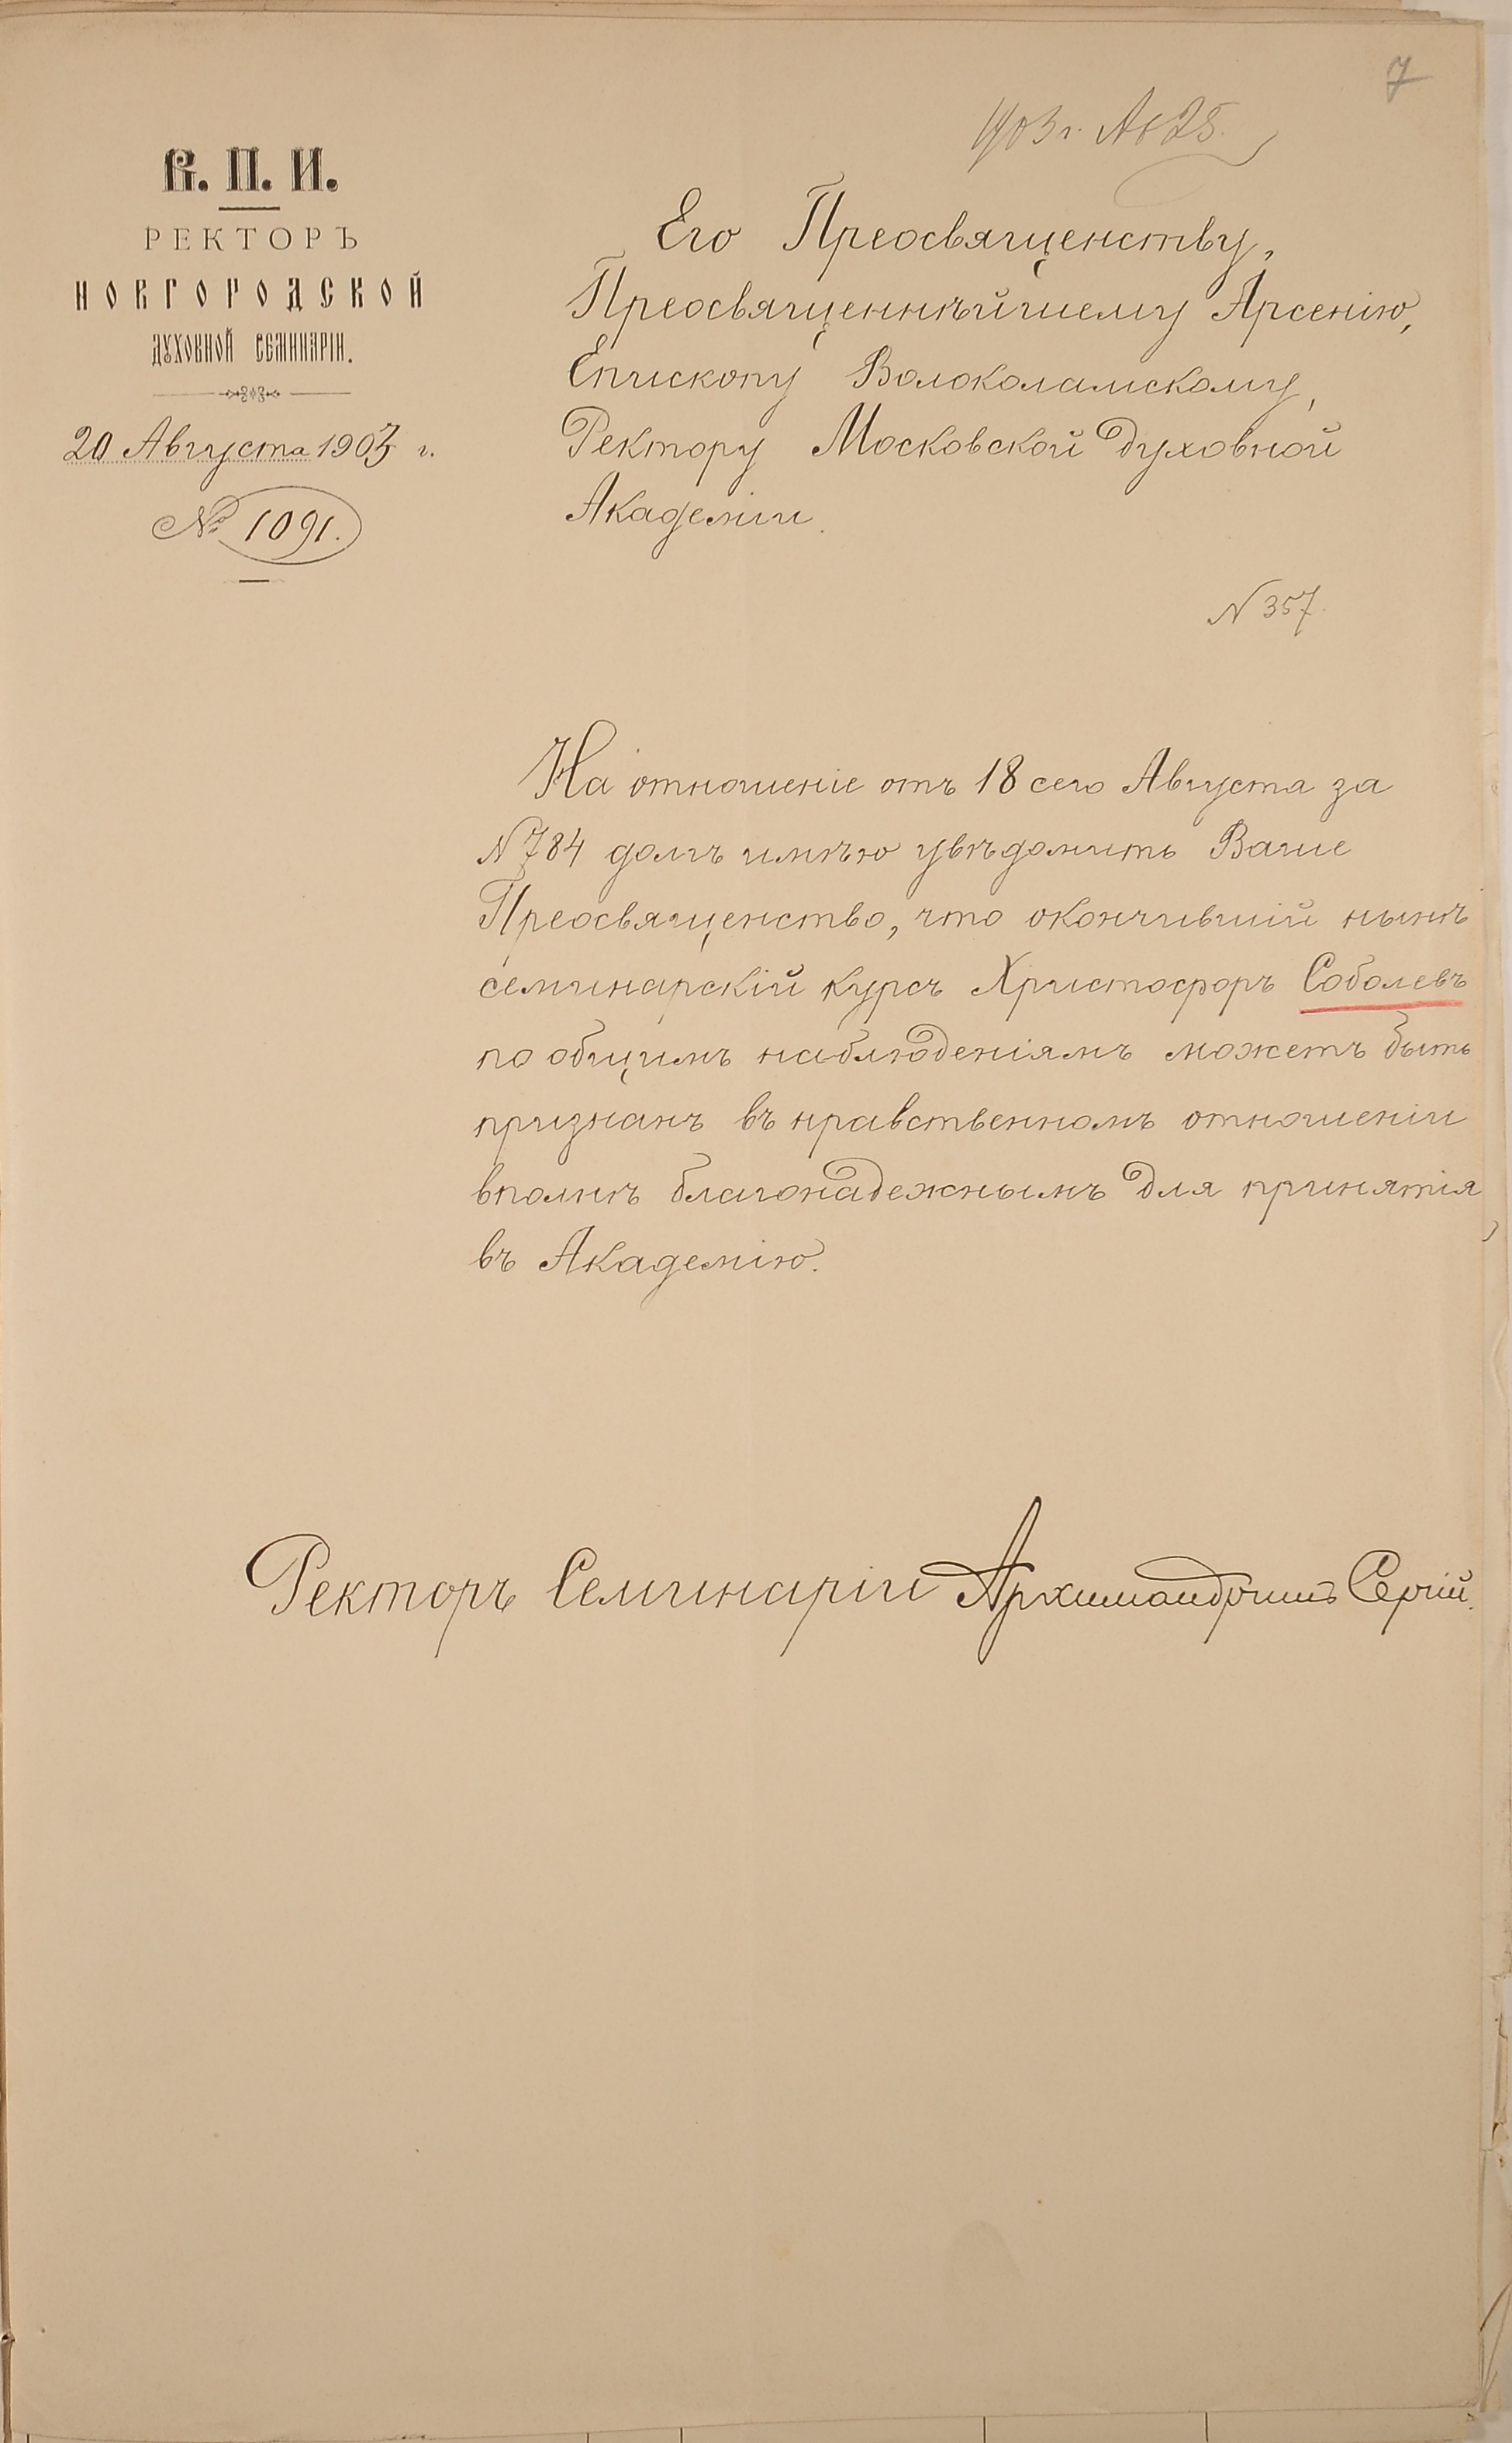 7
1903 г. Ав 25.
В. П. И.
РЕКТОРЪ
НОВГОРОДСКОЙ
ДУХОВНОЙ СЕМИНАРІИ.
20 Августа 1903 г.
№ 1091.
Его Преосвященству,
Преосвященнѣйшему Арсенію,
Епископу Волоколамскому,
Ректору Московской Духовной
Академіи.
N 357.
На отношеніе отъ 18 сего Августа за
N 784 долгъ имѣю увѣдомить Ваше
Преосвященство, что окончившій нынѣ
семинарскій курсъ Христофоръ Соболевъ
по общимъ наблюденіямъ можетъ быть
признанъ въ нравственномъ отношеніи
вполнѣ благонадежнымъ для принятія
въ Академію.
Ректоръ Семинаріи Архимандритъ Сергій.